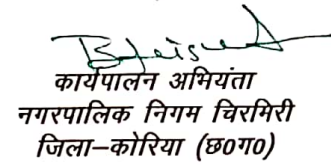 कार्यपालन अभियंता
नगरपालिक निगम चिरमिरी
जिला–कोरिया (छ०ग०)